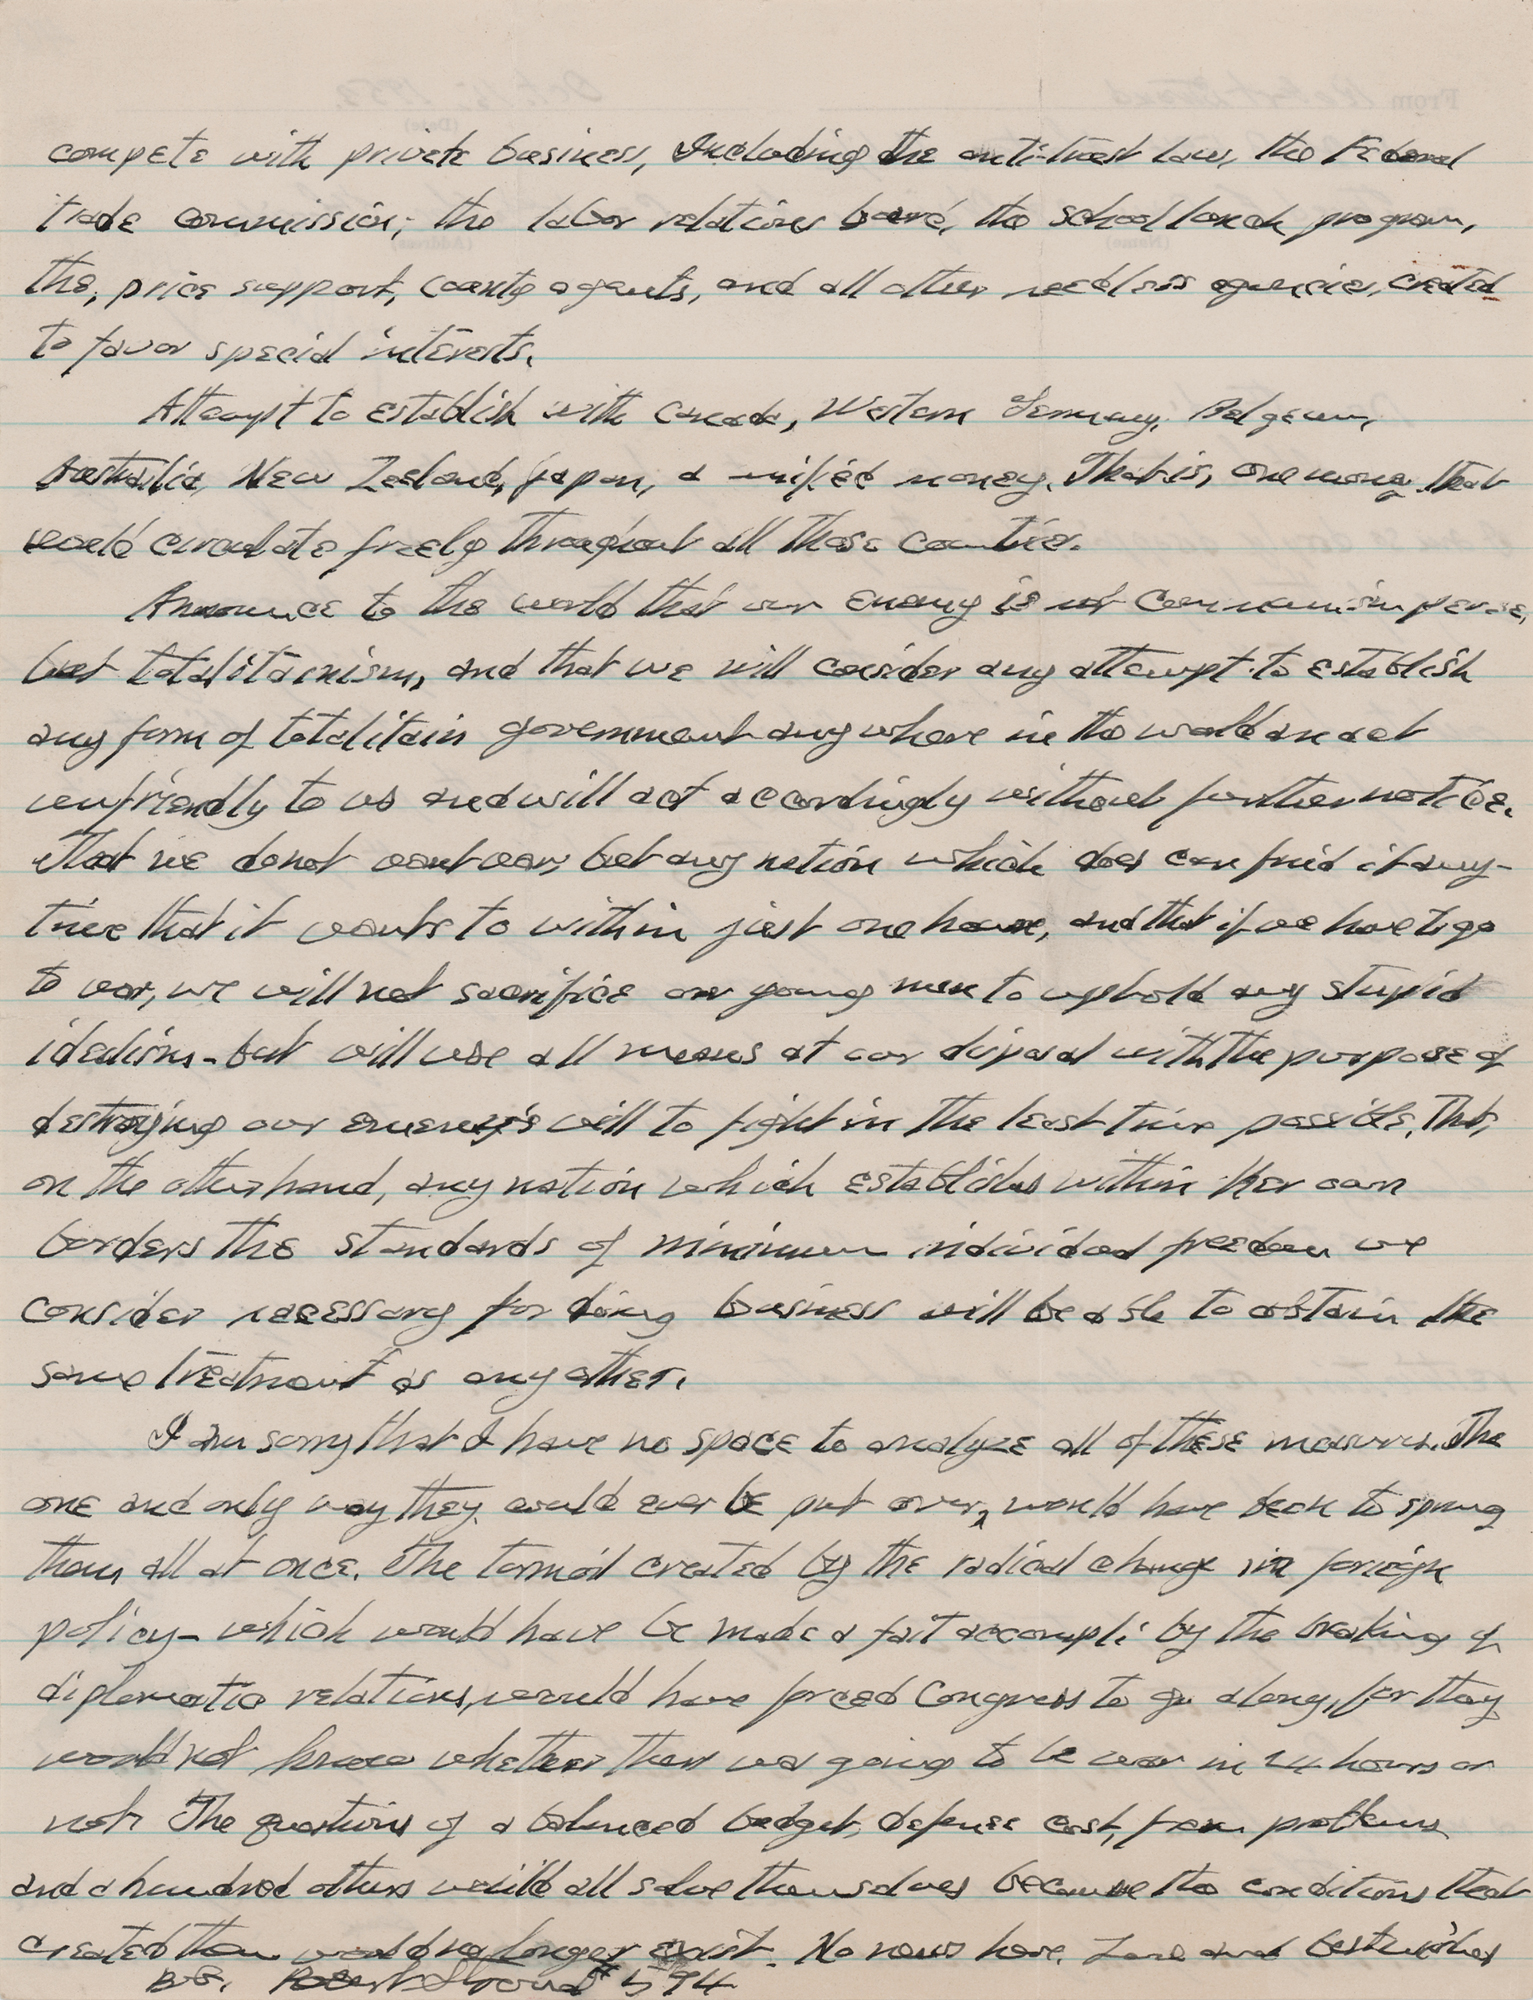 compete with private business, Including the anti-trust law, the Federal
trade commission; the labor relations board, the school lunch program,
the, price support, county agents, and all other needless agencies, created
to favor special interests.
Attempt to establish with Canada, Western Germany, Belgeum,
Australia, New Zeeland, Japan, a unified money. That is, one money that
would circulate freely throughout all those countries.
Announce to the world that our enemy is not Communism per se,
but totalitarnism, and that we will consider any attempt to establish
any form of totalitain government anywhere in the world an act
unfriendly to us and will act accordingly without further notice.
That we do not want war, but any nation which does can find it any-
time that it wants to within just one hour, and that if we have to go
to war, we will not sacrifice our young men to uphold any stupid
idealism - but will use all means at our disposal with the purpose of
destroying our enemy's will to fight in the least time possible. That,
on the other hand, any nation which establishes within her own
borders the standards of minimum individual freedom we
consider necessary for doing business will be able to obtain the
same treatment as any other.
I am sorry that I have no space to analyze all of these measures. The
one and only way they could ever be put over, would have been to spring
them all at once. The turmoil created by the radical change in foreign
policy - which would have be made a fait accompli by the breaking of
diplomatic relations, would have forced Congress to go along, for they
would not know whether there was going to be war in 24 hours or
not. The questions of a balanced budget, defense cost, farm problems
and a hundred others would all solve themselves because the conditions that
created them would no longer exist. No news here. Love and best wishes
Robert Stroud # 594
From Robert Stroud
1953
(Date)
(Name)
(Address)